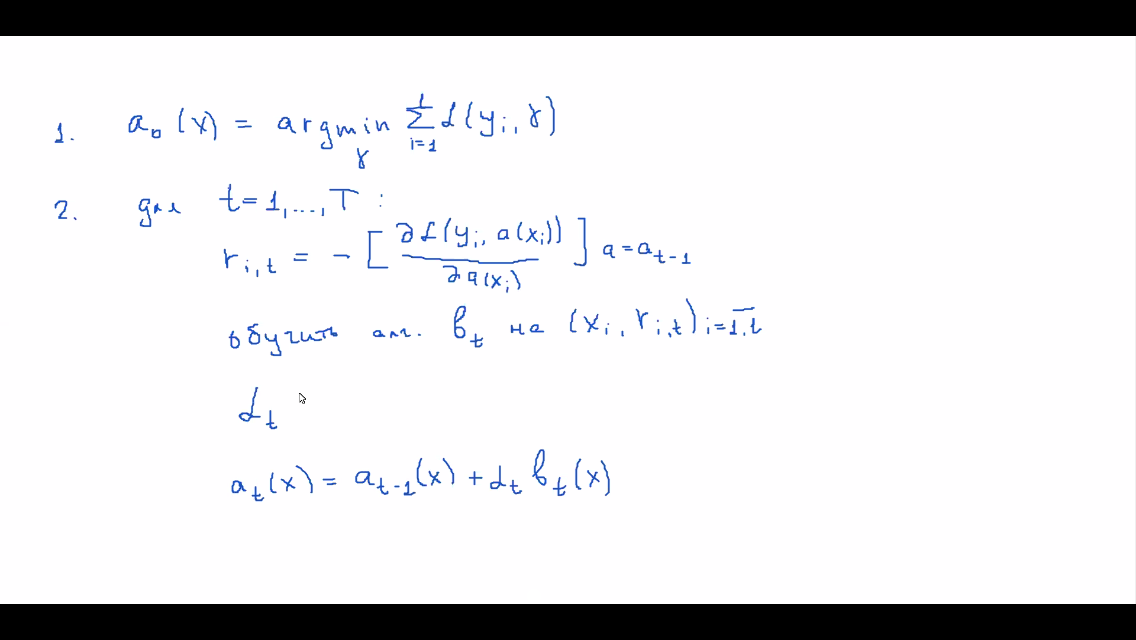 1. a₀(x) = argmin Σ L(yᵢ, γ)
γ i=1 l
2. для t=1,...,T :
rᵢ,ₜ = - [ ∂L(yᵢ, a(xᵢ)) / ∂a(xᵢ) ] a=aₜ₋₁
обучить алг. bₜ на (xᵢ, rᵢ,ₜ) i=1,l
αₜ
aₜ(x) = aₜ₋₁(x) + αₜ bₜ(x)